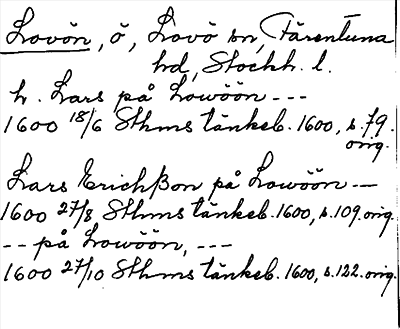 Lovön, ö, Lovö sn, Färentuna
hd, Stockh. l.
h. Lars på Lowöön ---
1600 18/6 Sthms tänkeb. 1600, s. 79.
orig.
Lars Erichßon på Lowöön --
1600 27/8 Sthms tänkeb. 1600, s. 109. orig.
-- på Lowöön, ---
1600 27/10 Sthms tänkeb. 1600, s. 122. orig.